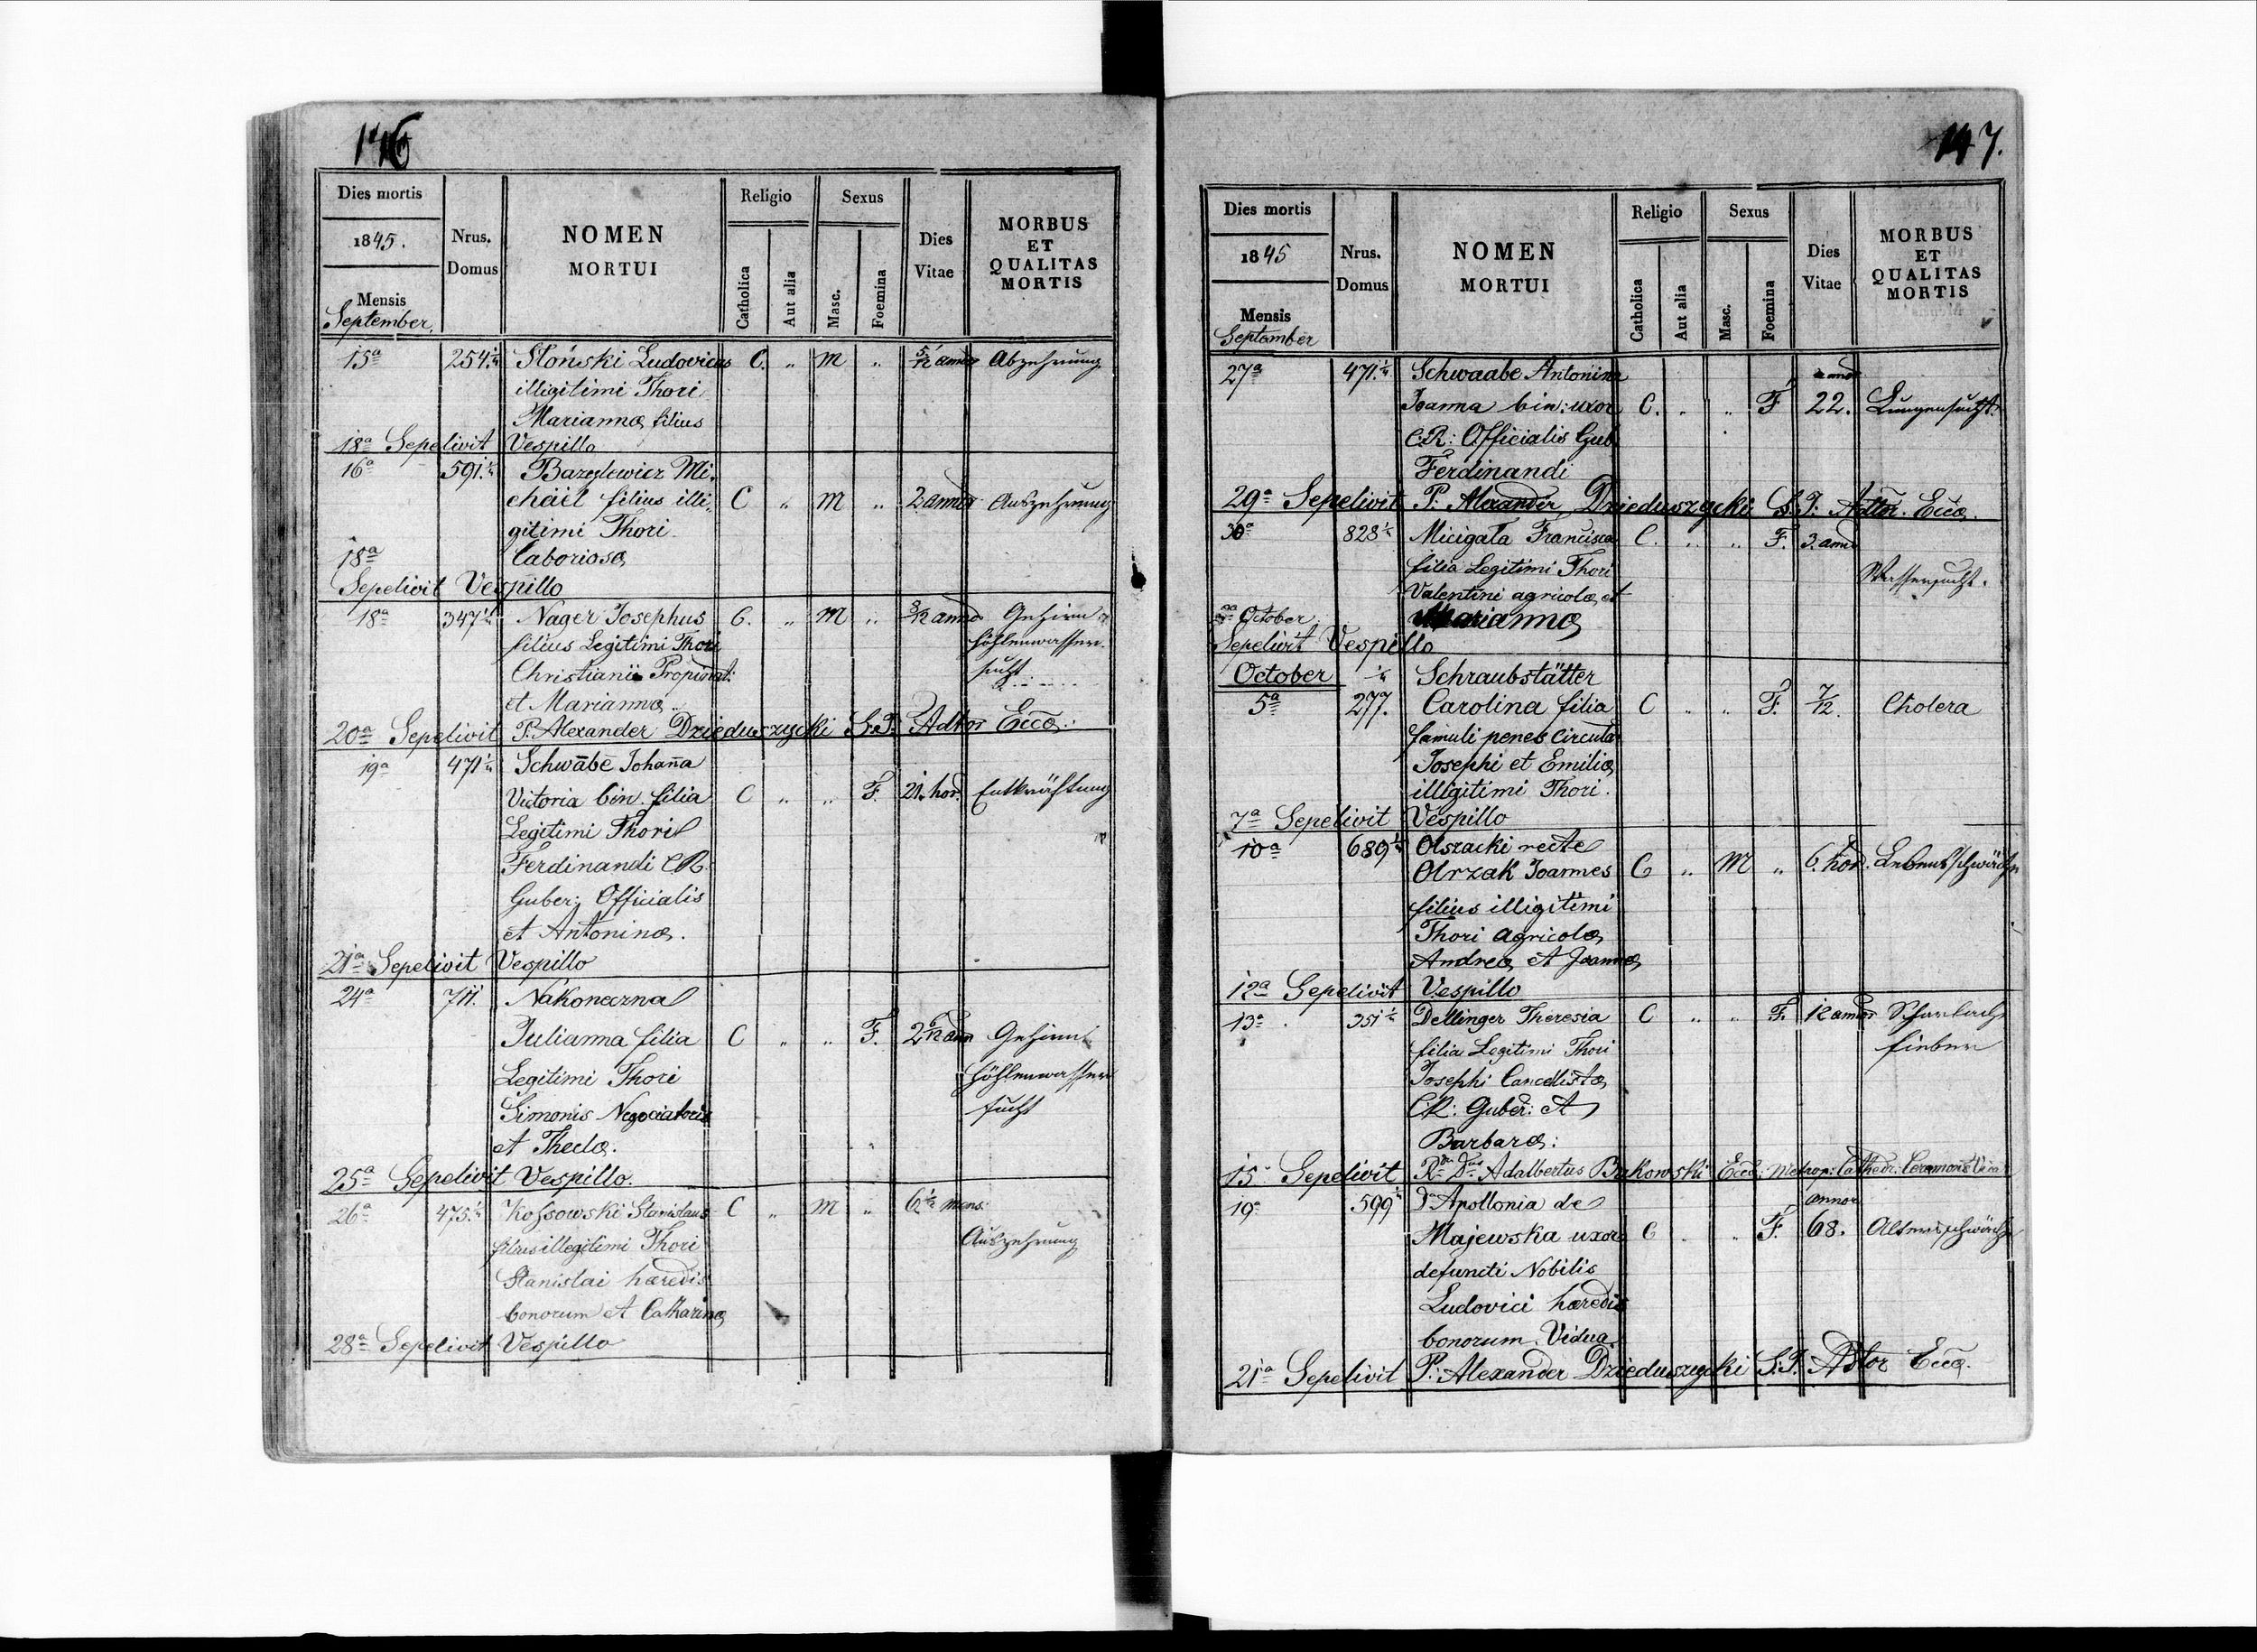 146
Dies mortis
1845.
Mensis
September
Nrus.
Domus
NOMEN
MORTUI
Religio
Catholica
Aut alia
Sexus
Masc.
Foemina
Dies
Vitae
MORBUS
ET
QUALITAS
MORTIS
15a 254 1/4 Słoński Ludovicus C. " M " 5/12 annor Abzehrung
illigitimi Thori
Mariannæ filius
18a Sepelivit Vespillo
16a 591 1/4 Bazylewicz Mi-
chäel filius illi- C " M " 2 annor Auszehrung
gitimi Thori
18a Laboriosæ
Sepelivit Vespillo
18a 347 1/4 Nager Josephus C. " M " 8/12 annor Gehirn
filius Legitimi Thori höhlenwasser-
Christiani Propinat: sucht
et Mariannæ
20a Sepelivit P. Alexander Dzieduszycki S.J. Adtor Eccæ:
19a 471 1/4 Schwābe Johaña
Victoria bin. filia C " " F. 21. hor. Entkräftung
Legitimi Thori
Ferdinandi CR.
Guber: Officialis
et Antoninæ.
21a Sepelivit Vespillo
24a 711. Nakoneczna
Julianna filia C " " F. 2 6/12 ann Gehirn
Legitimi Thori höhlenwasser
Simonis Negociatoris sucht
et Theclæ.
25a Sepelivit Vespillo.
26a 475 1/4 Kossowski Stanislaus C " M " 6 1/2 mens:
filius illegitimi Thori Auszehrung
Stanislai hæredis
bonorum et Catharinæ
28a Sepelivit Vespillo
147.
Dies mortis
1845
Mensis
September
Nrus.
Domus
NOMEN
MORTUI
Religio
Catholica
Aut alia
Sexus
Masc.
Foemina
Dies
Vitae
MORBUS
ET
QUALITAS
MORTIS
27a 471 1/4 Schwaabe Antonina annor
Joanna bin: uxor C. " " F 22. Lungensucht
C.R: Officialis Gub.
Ferdinandi
29a Sepelivit P: Alexander Dzieduszycki S.J: Adtor. Eccæ.
30a 828 1/4 Micigała Francisca C. " " F. 3. anno
filia Legitimi Thori Wassersucht.
Valentini agricolæ et
October Mariannæ
Sepelivit Vespillo
October 1/4 Schraubstätter
5a 277. Carolina filia C " " F. 7/12. Cholera
famuli penes circulā
Josephi et Emiliæ
illigitimi Thori.
7a Sepelivit Vespillo
10a 689 1/4 Olszacki recte
Olrzak Joannes C " M " 6. hor. Lebensschwäche
filius illigitimi
Thori agricolæ
Andreæ et Joannæ
12a Sepelivit Vespillo
13a 351 1/4 Dellinger Theresia C " " F. 12 annor Scharlach
filia Legitimi Thori fieber
Josephi Cancellistæ
C.R: Guber: et
Barbaræ:
15a Sepelivit Rdus Dnus Adalbertus Bukowski Eccæ: Metrop: Cathedr: Ceremoris Vicar
19a 599 1/4 Da Apollonia de annor
Majewska uxor C " " F. 68. Altersschwäche
defuncti Nobilis
Ludovici hæredis
bonorum Vidua
21a Sepelivit P: Alexander Dzieduszycki S.J. Adtor Eccæ.